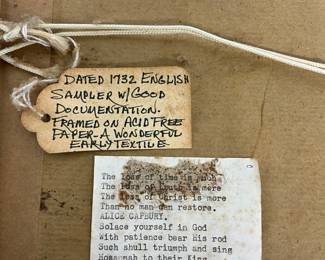 DATED 1732 ENGLISH
SAMPLER W/GOOD
DOCUMENTATION.
FRAMED ON ACID FREE
PAPER - A WONDERFUL
EARLY TEXTILE
The loss of time is much
The loss of truth is more
The loss of Christ is more
Than no man can restore.
ALICE CAPBURY.
Solace yourself in God
With patience bear His rod
Such shull triumph and sing
Hosannah to their King